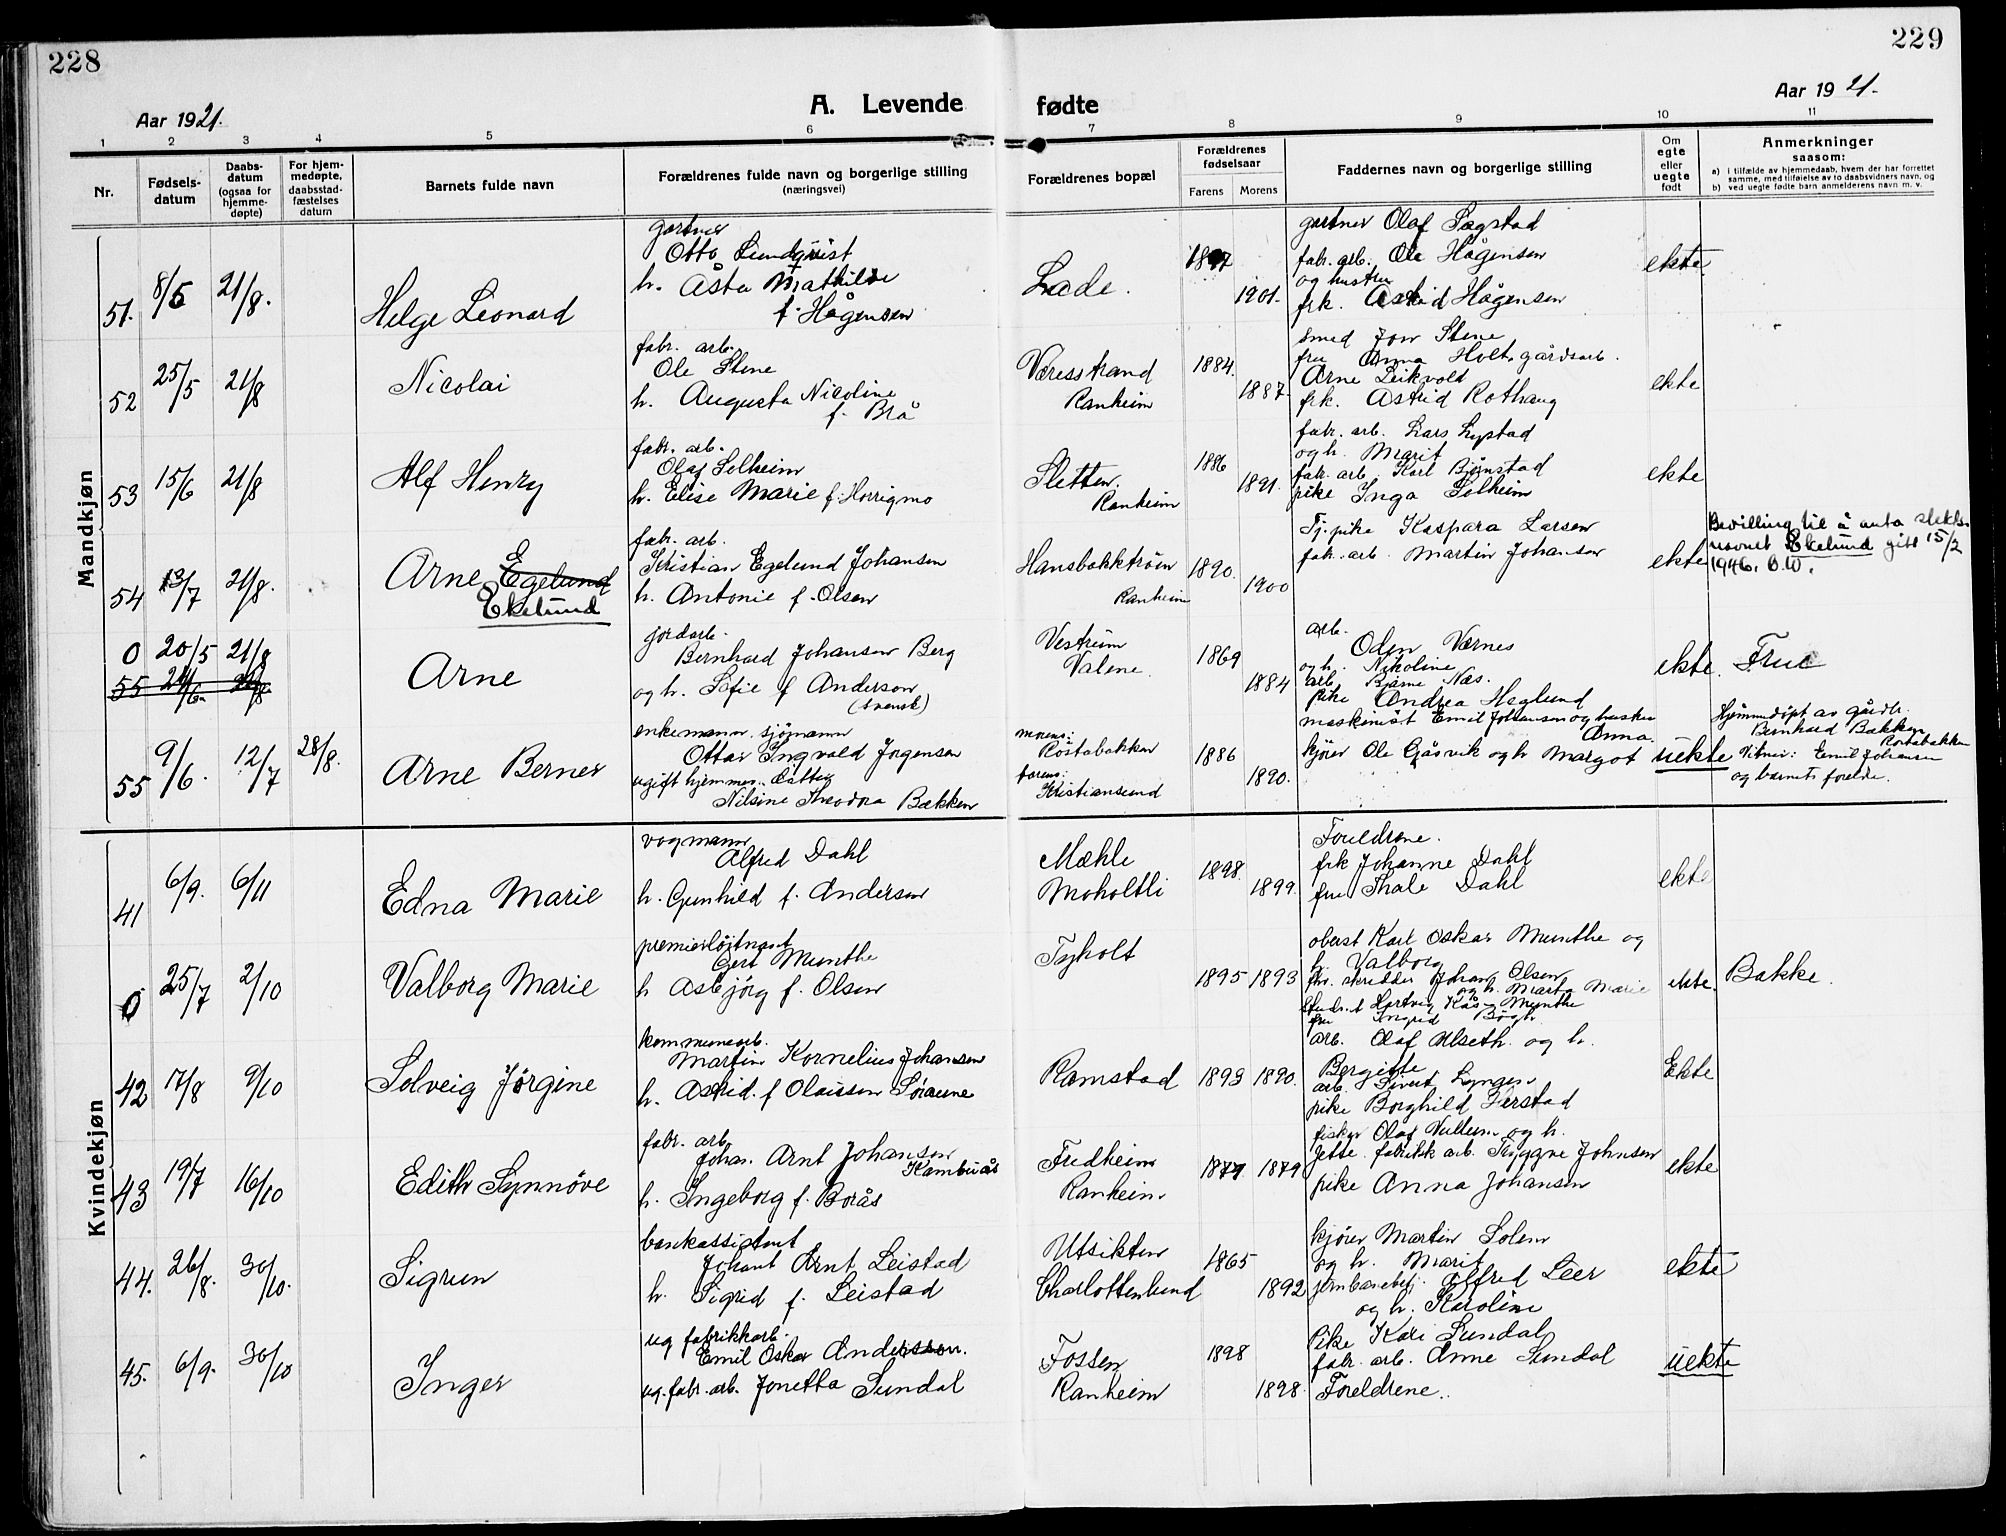 228
229
Aar 1921.
A. Levende fødte
Aar 1921.
1 2 3 4 5 6 7 8 9 10 11
Nr.
Fødsels-
datum
Daabs-
datum
(ogsaa for
hjemme-
døpte)
For hjem-
medøpte,
daabsstad-
fæstelses
datum
Barnets fulde navn
Forældrenes fulde navn og borgerlige stilling
(næringsvei)
Forældrenes bopæl
Forældrenes
fødselsaar
Farens Morens
Faddernes navn og borgerlige stilling
Om
egte
eller
uegte
født
Anmerkninger
saasom:
a) i tilfælde av hjemmedaab, hvem der har forrettet
samme, med tilføielse av to daabsvidners navn, og
b) ved uegte fødte barn anmelderens navn m. v.
Mandkjøn
51. 8/5 21/8. Helge Leonard
gartner
Otto Lundqvist
h. Åsta Mathilde
f. Hågensen
Lade.
1897
1901.
gartner Olaf Sægstad
fabr. arb. Ole Hågensen
og hustru
frk. Astrid Hågensen
ekte
52 25/5 21/8 Nicolai
fabr. arb.
Ole Stene
h. Augusta Nicoline
f. Brå
Væresstrand
Ranheim
1884.
1887.
smed Jon Stene
fru Anna Holt, gårdsarb.
Arne Leikvold
frk. Astrid Rothaug
ekte
53 15/6 21/8 Alf Henry
fabr. arb.
Olaf Solheim
h. Elise Marie f. Horrigmo
Sletten.
Ranheim
1886
1891.
fabr. arb. Lars Lystad
og h. Marit
fabr. arb. Karl Bjørstad
pike Inga Solheim
ekte
54 13/7 21/8. Arne Egelund
Ekelund
fabr. arb.
Kristian Egelund Johansen
h. Antonie f. Olsen
Hansbakktrøen
Ranheim
1890.
1900
Tj. pike Kaspara Larsen
fabr. arb. Martin Johansen
ekte
Bevilling til å anta slekts-
navnet Ekelund gitt 15/2
1946. O.W.
0 20/5 21/8
55 24/6 Arne
jordarb.
Bernhard Johansen Berg
og h. Sofie f. Anderson
(svensk)
Vestrum
Valene.
1869
1884
arb.
Oden Værnes
og h. Nikoline
arb. Bjarne Næs.
pike Andrea Heglund
ekte. Frue
55 9/6. 12/7 28/8. Arne Berner
enkemann. sjømann
Ottar Ingvald Jørgensen
ugift hjemmev. datter
Nilsine Theodora Bakken
morens:
Rostabakken
farens:
Kristiansund
1886
1890.
maskinist Emil Johansen og hustru
Anna.
kjører Ole Gåsvik og h Margot
uekte
Hjemmedøpt av gårdbr.
Bernhard Bakken
Rostabakken
Vitner: Emil Johansen
og barnets forelde.
Kvindekjøn
41 6/9. 6/11 Edna Marie
vognmann
Alfred Dahl
h. Gunhild f. Andersen
Mæhle
Moholtli
1898.
1899.
Foreldrene.
frk Johanne Dahl
fru Thale Dahl
ekte
0 25/7 2/10 Valborg Marie
premierløitnant
Gert Munthe
h Asbjørg f. Olsen
Tyholt
1895 1893
oberst Karl Oskar Munthe og
h. Valborg
fhv. skredder Johan Olsen
og h. Marta Marie
Student Hartvig Kås Munthe
fru Ingrid Bøgh.
ekte. Bakke.
42 17/8 9/10 Solveig Jørgine
kommunearb.
Martin Kornelius Johansen
h. Astrid. f Olaussen Søraune
Ramstad
1893 1890.
arb. Olaf Ulseth. og h.
Bergitte
arb. Sivert Lyngen
pike Borghild Jerstad
Ekte
43 19/7 16/10 Edith Synnøve
fabr. arb
Johan. Arnt Johansen
Kambuås
h. Ingeborg f. Borås
Fredheim
Ranheim
1877 1879
fisker Olaf Vullum og h.
Jette. fabrikk arb. Tryggve Johnsen
pike Anna Johansen
ekte
44. 26/8. 30/10. Sigrun
bankassistent
Johant Arnt Leistad
h. Sigrid f. Leistad
Utsikten
Charlottenlund
1865
1892
kjører Martin Solem
og h. Marit
jernbanebetj. Alfred Leer
og h. Karoline
ekte
45. 6/9. 30/10 Inger
ug fabrikkarb.
Emil Oskar Andersson.
ug. fabr. arb. Jonetta Sundal
Fossen
Ranheim
1898
1898.
Pike Kari Sundal
fabr. arb. Anne Sundal
Foreldrene..
uekte